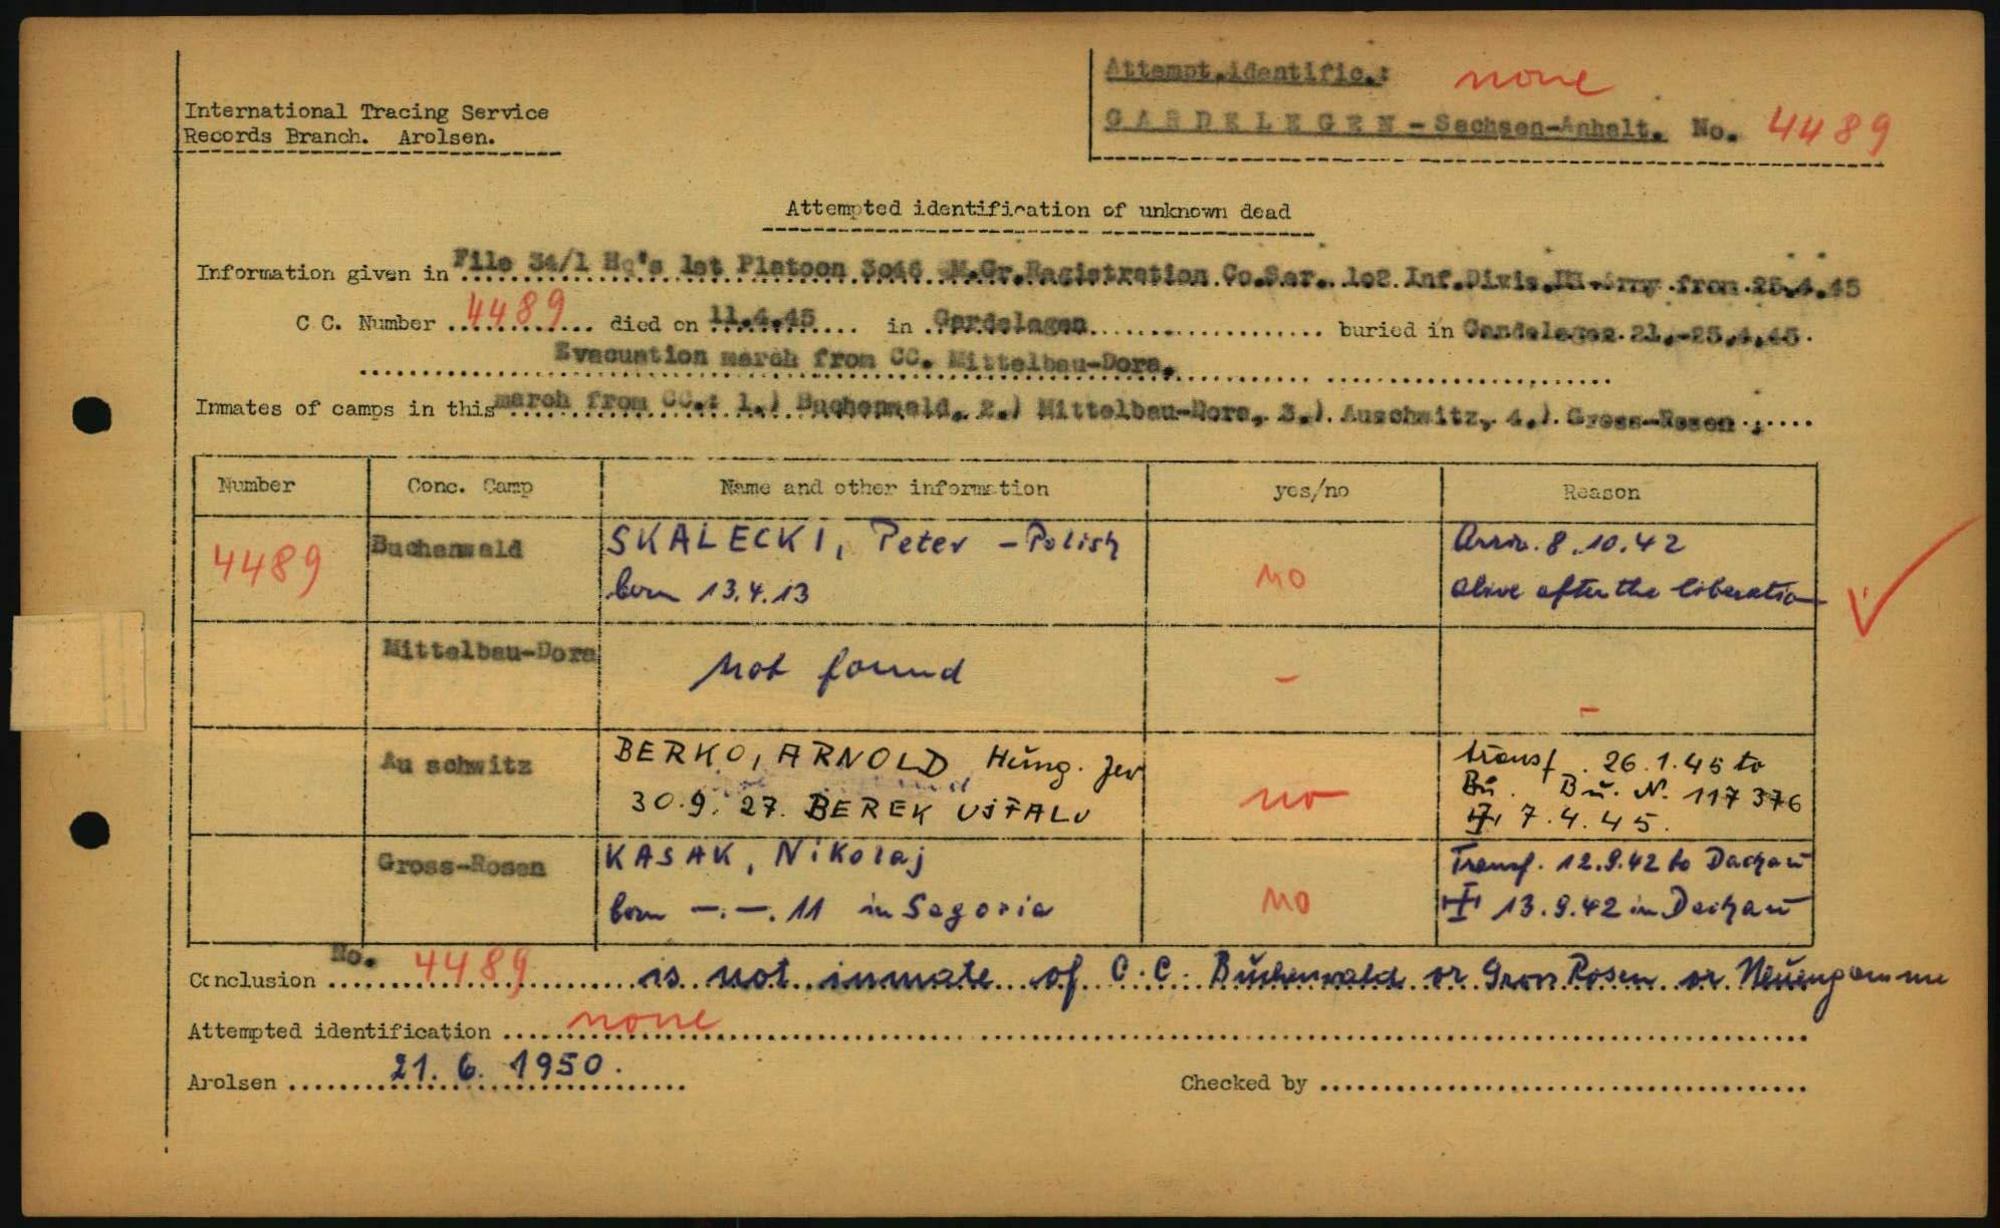 Attempt.identific.: none
International Tracing Service
Records Branch. Arolsen.
GARDELEGEN - Sachsen-Anhalt. No. 4489
Attempted identification of unknown dead
Information given in File 34/1 Hq's 1st Platoon 3046 M.Gr.Ragistration Co.Ser. 102 Inf.Divis. Army from 25.4.45
C C. Number 4489 died on 11.4.45 in Gardelagen buried in Gardelegen 21.-25.4.45.
Evacuation march from CC. Mittelbau-Dora.
Inmates of camps in this march from CC.: 1.) Buchenwald, 2.) Mittelbau-Dora, 3.) Auschwitz, 4.) Gross-Rosen.
Number Conc. Camp Name and other information yes/no Reason
4489 Buchenwald SKALECKI, Peter - Polish no Arriv. 8.10.42
born 13.4.13 alive after the liberation
Mittelbau-Dora not found - -
Au schwitz BERKO, ARNOLD Hung. Jew no transf. 26.1.45 to
30.9.27. BEREK UJFALU Bu. Bu. N. 117376
7.4.45.
Gross-Rosen KASAK, Nikolaj no Transf. 12.9.42 to Dachau
born -.-.11 in Sagoria 13.9.42 in Dachau
Conclusion No. 4489 is not inmate of C.C. Buchenwald or Gross Rosen or Neuengamme
Attempted identification none
Arolsen 21. 6. 1950.
Checked by